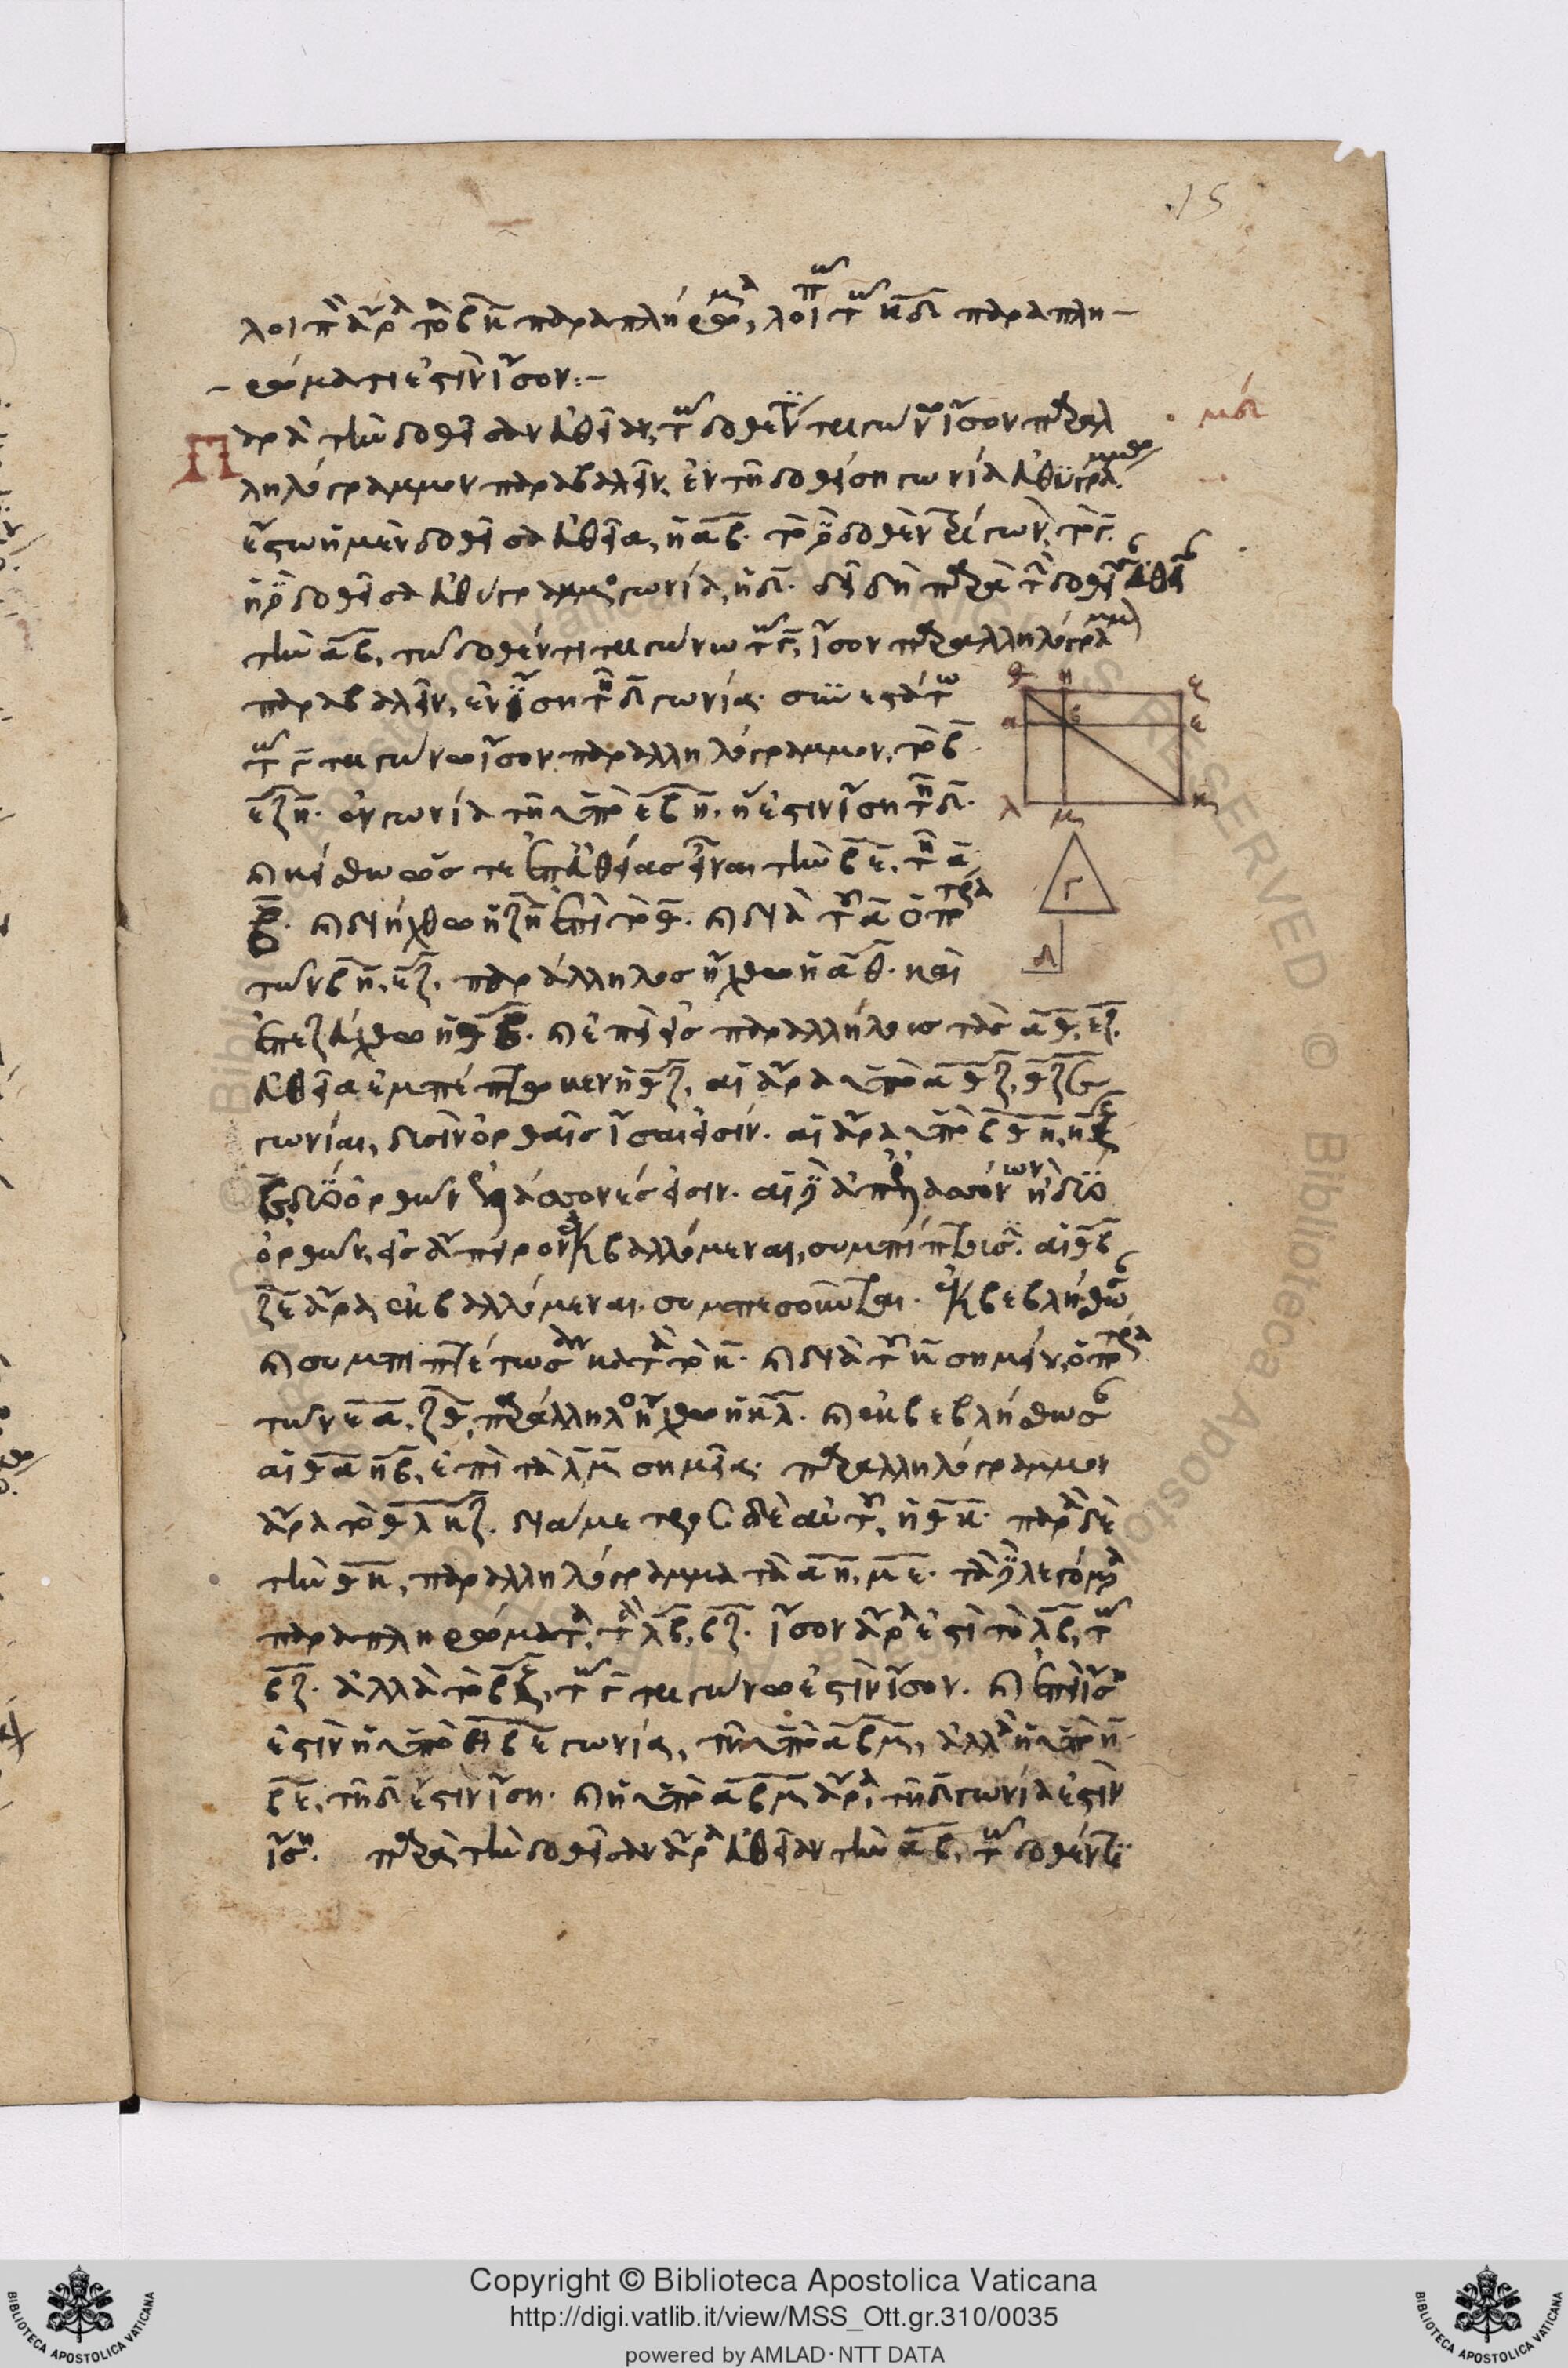 15
λοιπὸν ἄρα τὸ βκ παραπλήρωμα, λοιπῶ τῶ κδ παραπλη-
-ρώματι ἐστὶν ἴσον:-
μδ
Παρὰ τὴν δοθεῖσαν εὐθεῖαν, τῶ δοθέντι τριγώνω ἴσον παραλ
ληλόγραμμον παραβαλεῖν, ἐν τῆ δοθείση γωνία εὐθυγράμμω.
ἔστω ἡ μὲν δοθεῖσα εὐθεῖα, ἡ αβ. τὸ δὲ δοθὲν τρίγωνον, τὸ γ.
ἡ δὲ δοθεῖσα εὐθύγραμμος γωνία, ἡ δ. δεῖ δὴ παρὰ τὴν δοθεῖσαν εὐθεῖαν
τὴν αβ, τῶ δοθέντι τριγώνω τῶ γ, ἴσον παραλληλόγραμμον
παραβαλεῖν, ἐν ἴση τῆ δ γωνία. συνεστάτω
τῶ γ τριγώνω ἴσον παραλληλόγραμμον, τὸ β
εζη. ἐν γωνία τῆ ὑπὸ εβη. ἥ ἐστιν ἴση τῆ δ.
καὶ κείσθω ὥστε ἐπ' εὐθείας εἶναι τὴν βε, τῆ α
β. καὶ διήχθω ἡ ζη ἐπὶ τὸ θ. καὶ διὰ τοῦ α ὁποτέρα
τῶν βη, εζ. παράλληλος ἤχθω ἡ αθ. καὶ
ἐπεζεύχθω ἡ θβ. καὶ ἐπεὶ εἰς παραλλήλους τὰς αθ, εζ.
εὐθεῖα ἐμπέπτωκεν ἡ θζ, αἱ ἄρα ὑπὸ αθζ, θζε
γωνίαι, δυσὶν ὀρθαῖς ἴσαι εἰσίν. αἱ ἄρα ὑπὸ βθη, ηζ
ε, δύο ὀρθῶν ἐλάσσονές εἰσιν. αἱ δὲ ἀπ' ἐλασσόνων ἢ δύο
ὀρθῶν, εἰς ἄπειρον ἐκβαλλόμεναι, συμπίπτουσιν. αἱ θβ
ζε ἄρα ἐκβαλλόμεναι συμπεσοῦνται. ἐκβεβλήσθωσαν
καὶ συμπιπτέτωσαν κατὰ τὸ κ. καὶ διὰ τοῦ κ σημείου, ὁποτέρα
τῶν εα, ζθ, παράλληλος ἤχθω ἡ κλ. καὶ ἐκβεβλήσθωσαν
αἱ θα ηβ, ἐπὶ τὰ λ μ σημεῖα. παραλληλόγραμμον
ἄρα τὸ θλκζ. διάμετρος δὲ αὐτοῦ, ἡ θκ. παρὰ δὲ
τὴν θκ, παραλληλόγραμμα τὰ αη, με. τὰ δὲ λεγόμενα
παραπληρώματα, τὰ λβ, βζ. ἴσον ἄρα ἐστὶ τὸ λβ, τῶ
βζ. ἀλλὰ τὸ βζ, τῶ γ τριγώνω ἐστὶν ἴσον. καὶ ἐπεὶ ἴση
ἐστὶν ἡ ὑπὸ ηβε γωνία, τῆ ὑπὸ αβμ, ἀλλὰ ἡ ὑπὸ η
βε, τῆ δ ἐστὶν ἴση. καὶ ἡ ὑπὸ αβμ ἄρα, τῆ δ γωνία ἐστὶν
ἴση. παρὰ τὴν δοθεῖσαν ἄρα εὐθεῖαν τὴν αβ, τῶ δοθέντι
θ η ζ
α β ε
λ μ κ
γ
δ
Copyright © Biblioteca Apostolica Vaticana
http://digi.vatlib.it/view/MSS_Ott.gr.310/0035
powered by AMLAD·NTT DATA
BIBLIOTECA APOSTOLICA VATICANA
BIBLIOTECA APOSTOLICA VATICANA